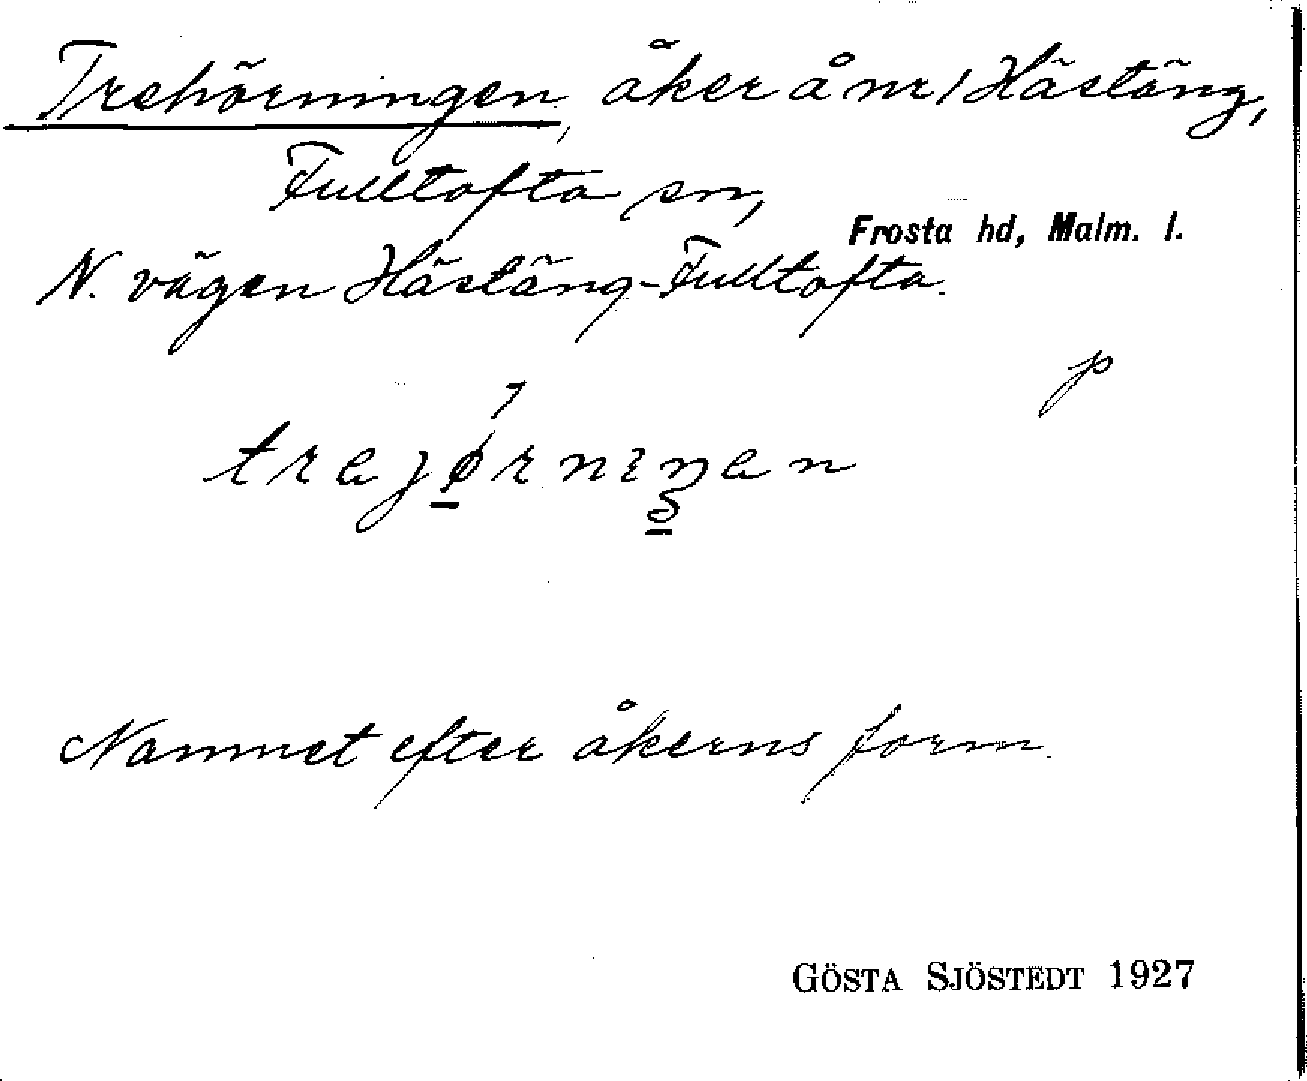 Trehörningen, åker å nr 1 Hästäng,
Fulltofta sn,
Frosta hd, Malm. l.
N. vägen Hästäng-Fulltofta.
p
Namnet efter åkerns form.
GÖSTA SJÖSTEDT 1927